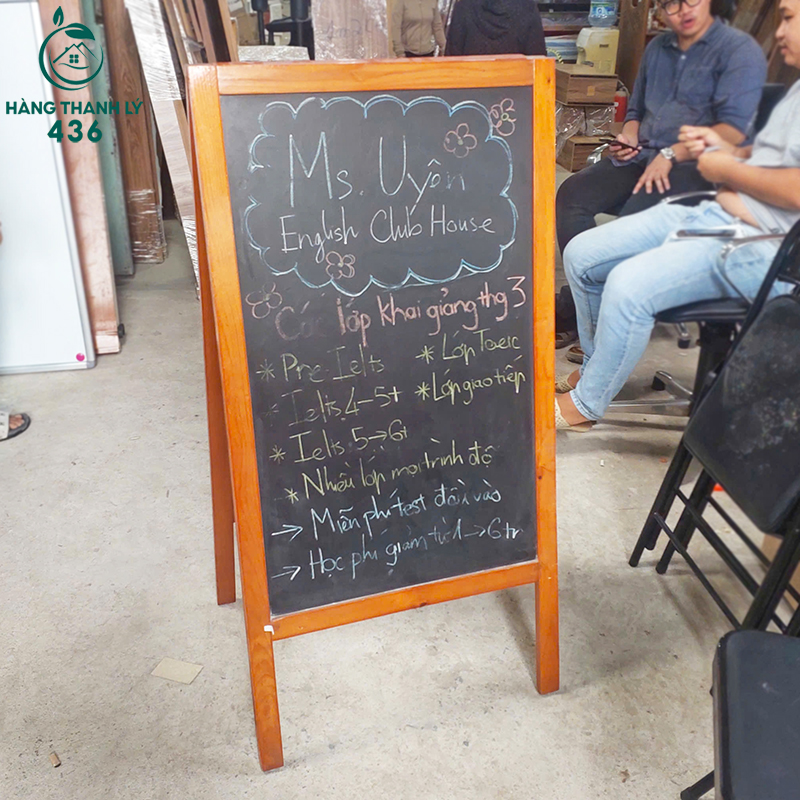 HÀNG THANH LÝ
436
Ms. Uyên
English Club House
Các lớp khai giảng thg 3
* Pre Ielts
* Lớp Toeic
* Ielts 4-5+
* Lớp giao tiếp
* Ielts 5→6+
* Nhiều lớp mọi trình độ
→ Miễn phí test đầu vào
→ Học phí giảm từ 1→6tr